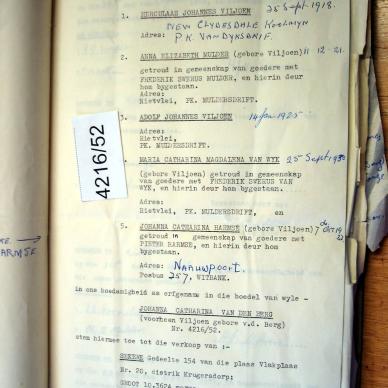 1. HERCULAAS JOHANNES VILJOEN 25 Sept. 1918.
NEW CLYDESDALE KOOLMYN
Adres: P.K. VANDYKSDRIF.
2. ANNA ELIZABETH MULDER (gebore Viljoen) 11 12 21.
getroud in gemeenskap van goedere met
FREDERIK SWERUS MULDER, en hierin deur
hom bygestaan.
Adres:
Rietvlei, PK. MULDERSDRIFT.
3. ADOLF JOHANNES VILJOEN 14 Jan 1925
Adres:
Rietvlei,
PK. MULDERSDRIFT.
4216/52
MARIA CATHARINA MAGDALENA VAN WYK 25 Sept 1930
(gebore Viljoen) getroud in gemeenskap
van goedere met FREDERIK SWERUS VAN
WYK, en hierin deur hom bygestaan.
Adres:
Rietvlei, PK. MULDERSDRIFT, en
5. JOHANNA CATHARINA HARMSE (gebore Viljoen) 7
getroud in gemeenskap van goedere met
PIETER HARMSE, en hierin deur hom
bygestaan.
ARMSE
Adres: NAAUWPOORT.
Posbus 257, WITBANK.
in ons hoedanigheid as erfgename in die boedel van wyle -
JOHANNA CATHARINA VAN DEN BERG
(voorheen Viljoen gebore v.d. Berg)
Nr. 4216/52.
stem hiermee toe tot die verkoop van :-
SEKERE Gedeelte 154 van die plaas Vlakplaas
Nr. 20, distrik Krugersdorp;
GROOT